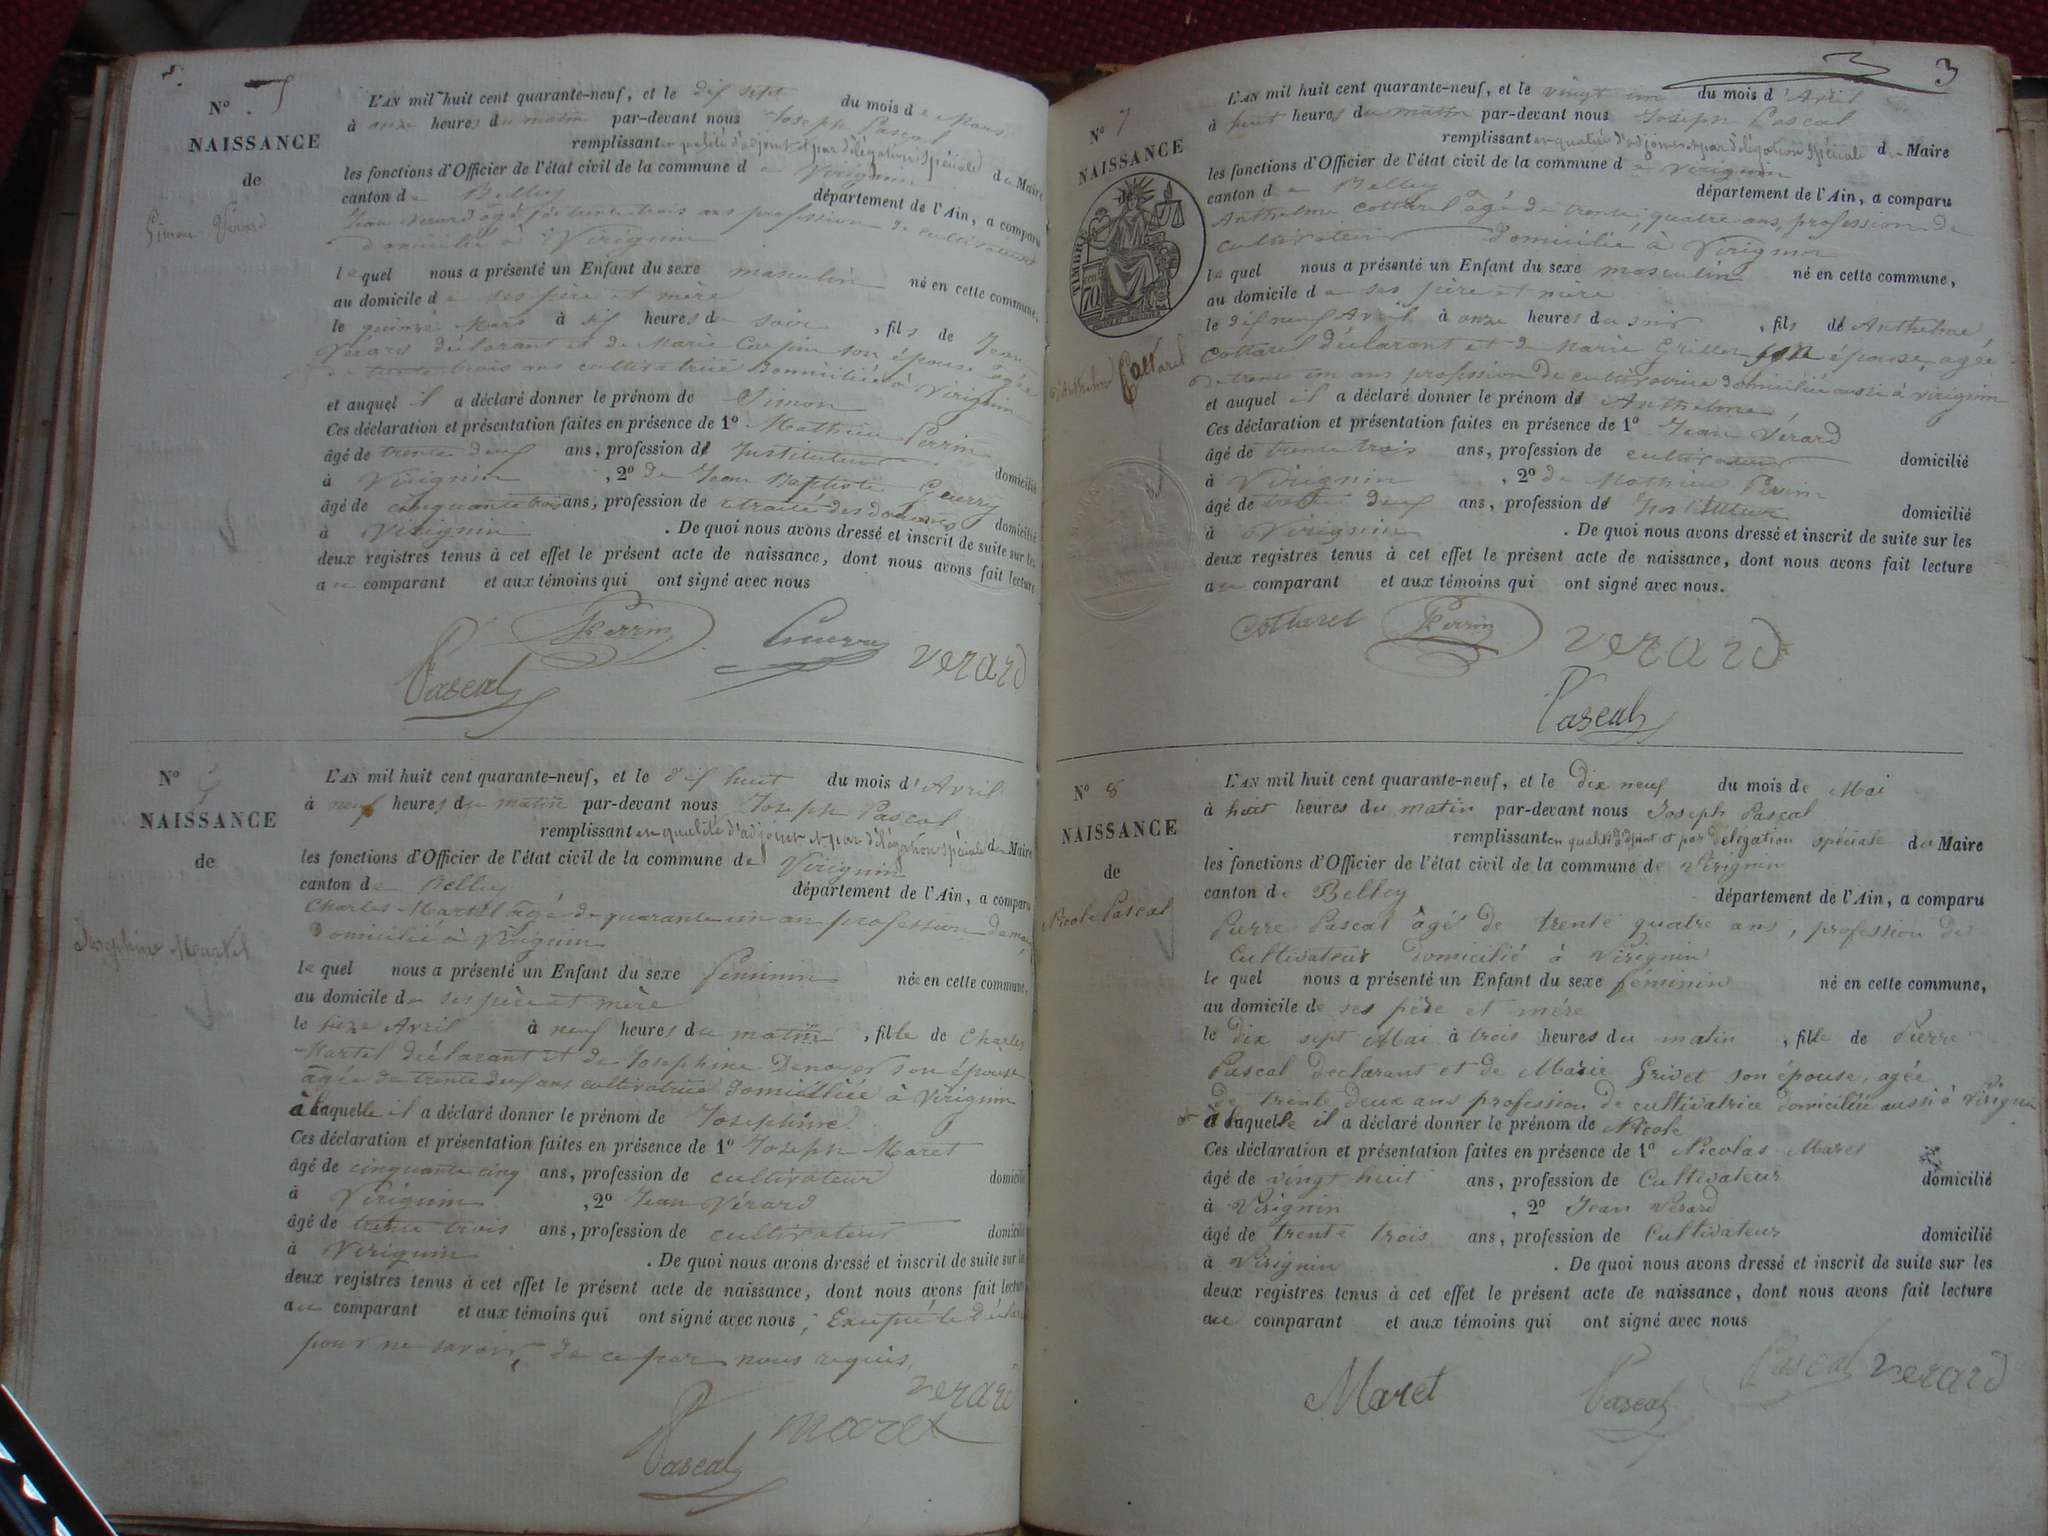 N° 5
NAISSANCE
de
Simon Vérard
L'AN mil huit cent quarante-neuf, et le dix sept du mois de Mars
à onze heures du matin par-devant nous Joseph Pascal
remplissant en qualité d'adjoint et par délégation spéciale du Maire
les fonctions d'Officier de l'état civil de la commune de Virignin
canton de Belley département de l'Ain, a comparu
Jean Verard agé de trente trois ans profession de cultivateur
domicilié à Virignin
lequel nous a présenté un Enfant du sexe masculin né en cette commune,
au domicile de ses père et mère
le quinze Mars à six heures du soir, fils de Jean
Vérard déclarant et de Marie Carpin son épouse agée
de trente trois ans cultivatrice Domiciliée à Virignin
et auquel il a déclaré donner le prénom de Simon
Ces déclaration et présentation faites en présence de 1° Mathieu Perrin
âgé de trente deux ans, profession d' Instituteur domicilié
à Virignin, 2° de Jean Baptiste Guerry
âgé de cinquante trois ans, profession de retraité des douanes domicilié
à Virignin. De quoi nous avons dressé et inscrit de suite sur les
deux registres tenus à cet effet le présent acte de naissance, dont nous avons fait lecture
au comparant et aux témoins qui ont signé avec nous
Perrin Guerry verard
Pascal
N° 6
NAISSANCE
de
Josephine Martel
L'AN mil huit cent quarante-neuf, et le dix huit du mois d'Avril
à neuf heures du matin par-devant nous Joseph Pascal
remplissant en qualité d'adjoint et par délégation spéciale du Maire
les fonctions d'Officier de l'état civil de la commune de Virignin
canton de Belley département de l'Ain, a comparu
Charles Martel agé de quarante un an profession de
domicilié à Virignin
lequel nous a présenté un Enfant du sexe féminin née en cette commune,
au domicile de ses père et mère
le seize Avril à neuf heures du matin, fille de Charles
Martel déclarant et de Josephine Denoyer son épouse
agée de trente deux ans cultivatrice domiciliée à Virignin
à laquelle il a déclaré donner le prénom de Joséphine
Ces déclaration et présentation faites en présence de 1° Joseph Maret
âgé de cinquante cinq ans, profession de cultivateur domicilié
à Virignin, 2° Jean Vérard
âgé de trente trois ans, profession de cultivateur domicilié
à Virignin. De quoi nous avons dressé et inscrit de suite sur les
deux registres tenus à cet effet le présent acte de naissance, dont nous avons fait lecture
au comparant et aux témoins qui ont signé avec nous, Excepté le
pour ne savoir, de ce par nous requis,
verard
Pascal maret
3
N° 7
NAISSANCE
de
TIMBRE
70
Anthelme Cottarel
L'AN mil huit cent quarante-neuf, et le vingt un du mois d'Avril
à huit heures du matin par-devant nous Joseph Pascal
remplissant en qualité d'adjoint et par délégation spéciale du Maire
les fonctions d'Officier de l'état civil de la commune de Virignin
canton de Belley département de l'Ain, a comparu
Anthelme Cottarel agé de trente quatre ans, profession de
cultivateur domicilié à Virignin
lequel nous a présenté un Enfant du sexe masculin né en cette commune,
au domicile de ses père et mère
le dix neuf Avril à onze heures du soir, fils de Anthelme
Cottarel déclarant et de Marie Grillon son épouse, agée
de trente un ans profession de cultivatrice domiciliée aussi à Virignin
et auquel il a déclaré donner le prénom d' Anthelme
Ces déclaration et présentation faites en présence de 1° Jean Vérard
âgé de trente trois ans, profession de cultivateur domicilié
à Virignin, 2° de Mathieu Perrin
âgé de trente deux ans, profession d' Instituteur domicilié
à Virignin. De quoi nous avons dressé et inscrit de suite sur les
deux registres tenus à cet effet le présent acte de naissance, dont nous avons fait lecture
au comparant et aux témoins qui ont signé avec nous.
Cottarel Perrin verard
Pascal
N° 8
NAISSANCE
de
Nicole Pascal
L'AN mil huit cent quarante-neuf, et le dix neuf du mois de Mai
à huit heures du matin par-devant nous Joseph Pascal
remplissant en qualité d'adjoint et par délégation spéciale du Maire
les fonctions d'Officier de l'état civil de la commune de Virignin
canton de Belley département de l'Ain, a comparu
Pierre Pascal âgé de trente quatre ans, profession de
Cultivateur domicilié à Virignin
lequel nous a présenté un Enfant du sexe féminin né en cette commune,
au domicile de ses père et mère
le dix sept Mai à trois heures du matin, fille de Pierre
Pascal declarant et de Marie Grivet son épouse, agée
de trente deux ans profession de cultivatrice domiciliée aussi à Virignin
à laquelle il a déclaré donner le prénom de Nicole
Ces déclaration et présentation faites en présence de 1° Nicolas Maret
âgé de vingt huit ans, profession de Cultivateur domicilié
à Virignin, 2° Jean Verard
âgé de trente trois ans, profession de Cultivateur domicilié
à Virignin. De quoi nous avons dressé et inscrit de suite sur les
deux registres tenus à cet effet le présent acte de naissance, dont nous avons fait lecture
au comparant et aux témoins qui ont signé avec nous
Maret Pascal Pascal verard